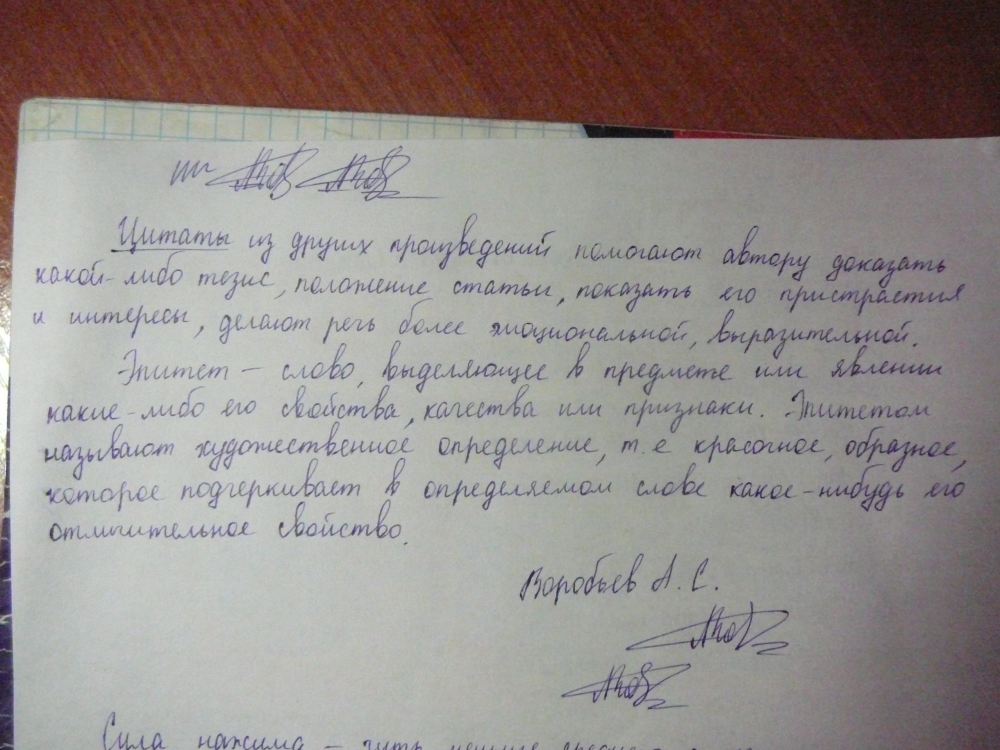 Цитаты из других произведений помогают автору доказать
какой-либо тезис, положение статьи, показать его пристрастия
и интересы, делают речь более эмоциональной, выразительной.
Эпитет — слово, выделяющее в предмете или явлении
какие-либо его свойства, качества или признаки. Эпитетом
называют художественное определение, т.е красочное, образное,
которое подчеркивает в определяемом слове какое-нибудь его
отличительное свойство.
Воробьев А. С.
Сила нажима — чуть